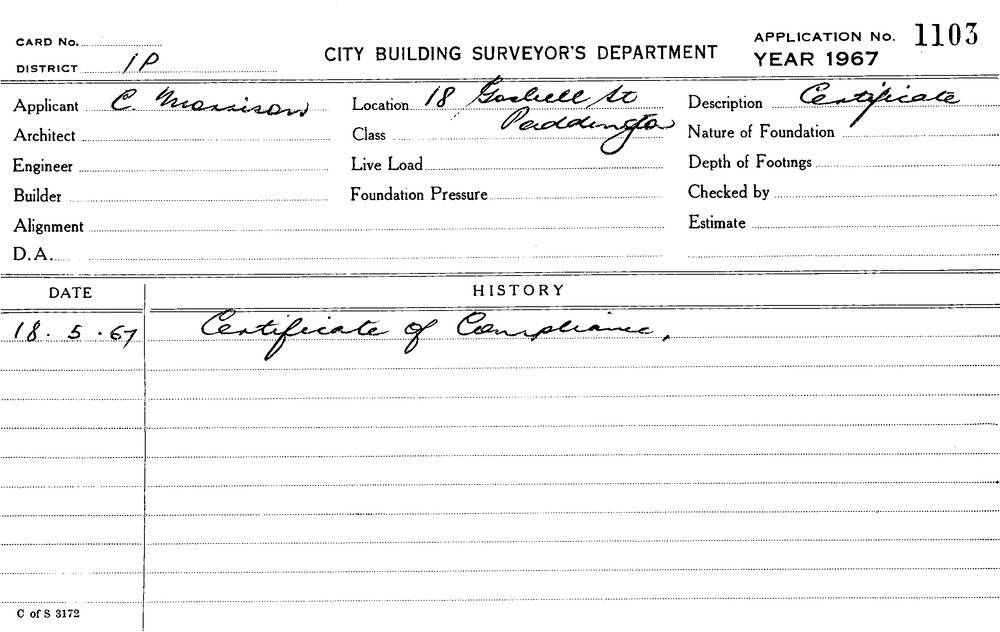 CARD No.
DISTRICT 1P
CITY BUILDING SURVEYOR'S DEPARTMENT
APPLICATION No. 1103
YEAR 1967
Applicant C. Morrison Location 18 Gosbell St Description Certificate
Architect Class Paddington Nature of Foundation
Engineer Live Load Depth of Footings
Builder Foundation Pressure Checked by
Alignment Estimate
D.A.
DATE HISTORY
18.5.67 Certificate of Compliance.
C of S 3172